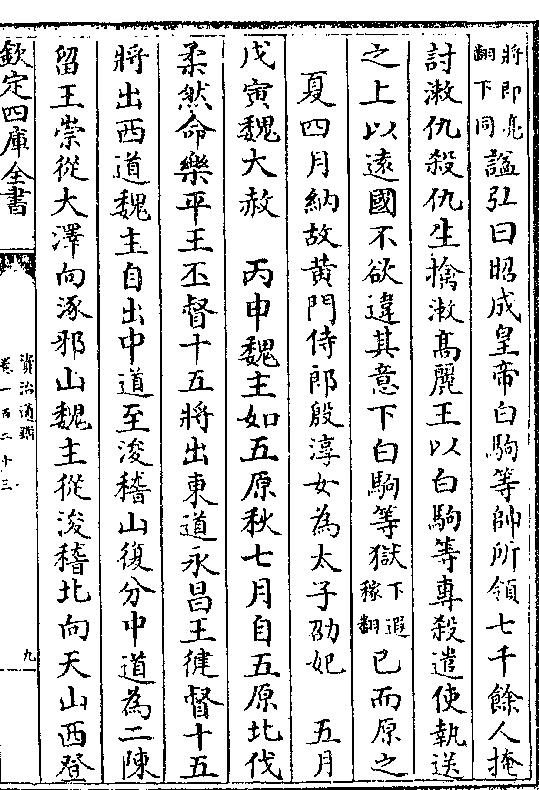 將即亮
翻下同
諡弘曰昭成皇帝白駒等帥所領七千餘人掩
討漱仇殺仇生擒漱髙麗王以白駒等專殺遣使執送
之上以逺國不欲違其意下白駒等獄
下遐
稼翻
已而原之
夏四月納故黄門侍郎殷淳女為太子劭妃 五月
戊寅魏大赦 丙申魏主如五原秋七月自五原北伐
柔然命樂平王丕督十五將出東道永昌王健督十五
將出西道魏主自出中道至浚稽山復分中道為二陳
留王崇從大澤向涿邪山魏主從浚稽北向天山西登
欽定四庫全書
資治通鑑
卷一百二十三
九